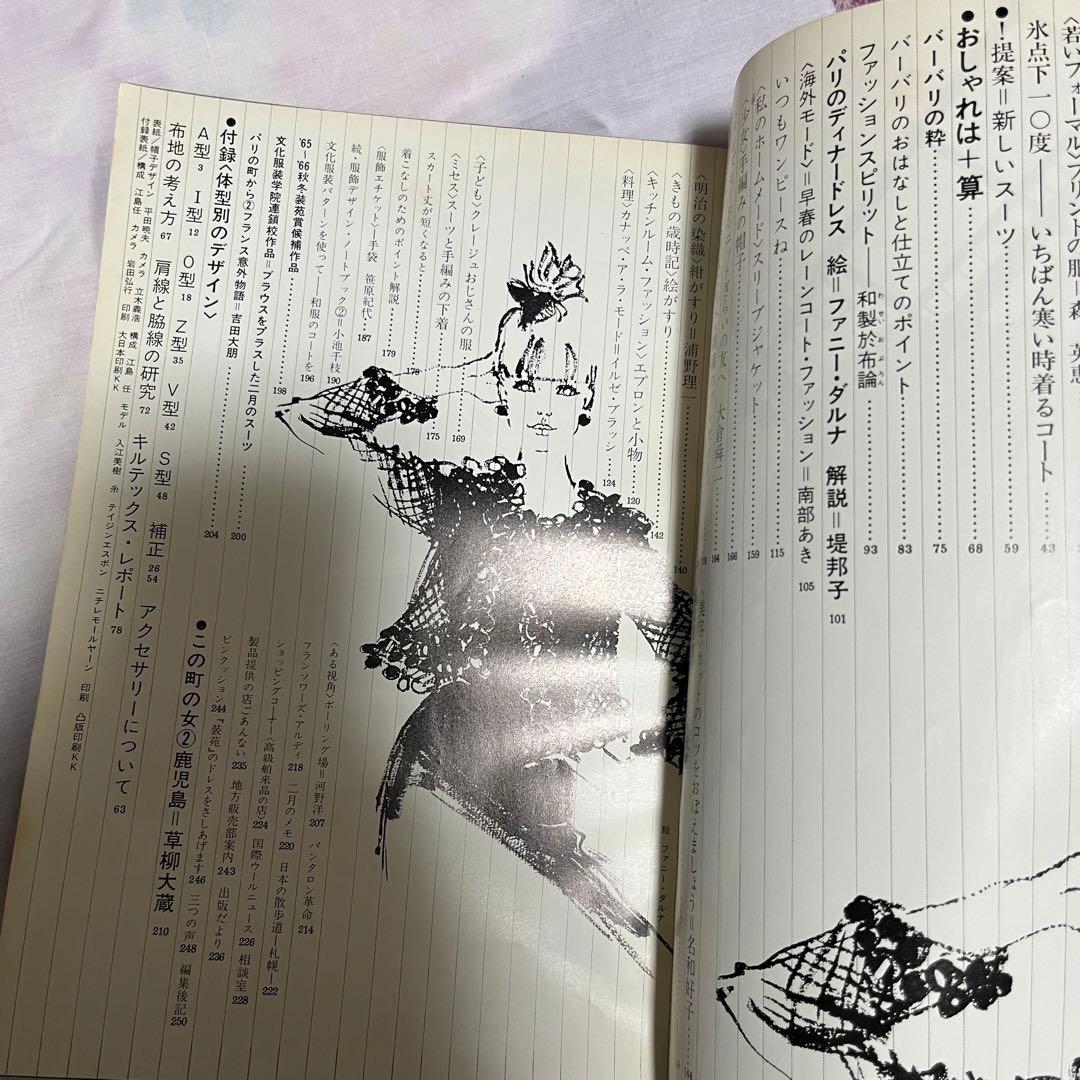 〈若いフォーマル〉プリントの服＝森　英恵
氷点下一〇度――いちばん寒い時着るコート……43
●！提案＝新しいスーツ……59
●おしゃれは＋算……68
バーバリの粋……75
バーバリのおはなしと仕立てのポイント……83
ファッションスピリット――和製於布論……93
わせいおぷろん
パリのディナードレス　絵＝ファニー・ダルナ　解説＝堤邦子 101
〈海外モード〉＝早春のレーンコート・ファッション＝南部あき 105
いつもワンピースね……115
〈私のホームメード〉スリープジャケット……159
〈少女〉手編みの帽子……166
友へ　大倉舜二……164
〈明治の染織〉紺がすり＝浦野理一
〈きもの歳時記〉絵がすり……140
〈キッチンルーム・ファッション〉エプロンと小物……142
〈料理〉カナッペ・ア・ラ・モード＝イルゼ・ブラッシ……120
124
〈子ども〉クレージュおじさんの服
〈ミセス〉スーツと手編みの下着……169
スカート丈が短くなると……175
着こなしのためのポイント解説……179
〈服飾エチケット〉―手袋　笹原紀代…187
続・服飾デザイン・ノートブック②＝小池千枝 190
文化服装パターンを使って―和服のコートを 196
'65〜'66秋冬装苑賞候補作品……198
文化服装学院連鎖校作品＝ブラウスをプラスした二月のスーツ……200
パリの町から②フランス意外物語＝吉田大朋……204
●付録〈体型別のデザイン〉
A型 3　I型 12　O型 18　Z型 35　V型 42　S型 48　補正 26 54　アクセサリーについて 63
布地の考え方 67　肩線と脇線の研究 72　キルテックス・レポート 78
表紙／帽子デザイン　平田暁夫　カメラ　立木義浩　構成　江島　任　モデル　入江美樹　糸　テイジンエスポン　ニチレモールヤーン　印刷　凸版印刷KK
付録表紙／構成　江島任　カメラ　岩田弘行　印刷　大日本印刷KK
〈ある視角〉ボーリング場＝河野洋 207　パンタロン革命 214
フランソワーズ・アルディ 218　二月のメモ 220　日本の散歩道―札幌― 222
ショッピングコーナー〈高級舶来品の店〉 224　国際ウールニュース 226　相談室 228
製品提供の店ごあんない 235　地方販売部案内 243　出版だより 236
ピンクッション 244　『装苑』のドレスをさしあげます 246　三つの声 248　編集後記 250
●この町の女②鹿児島＝草柳大蔵 210
絵　ファニー・ダルナ
のコツをおぼえましょう＝名和好子……